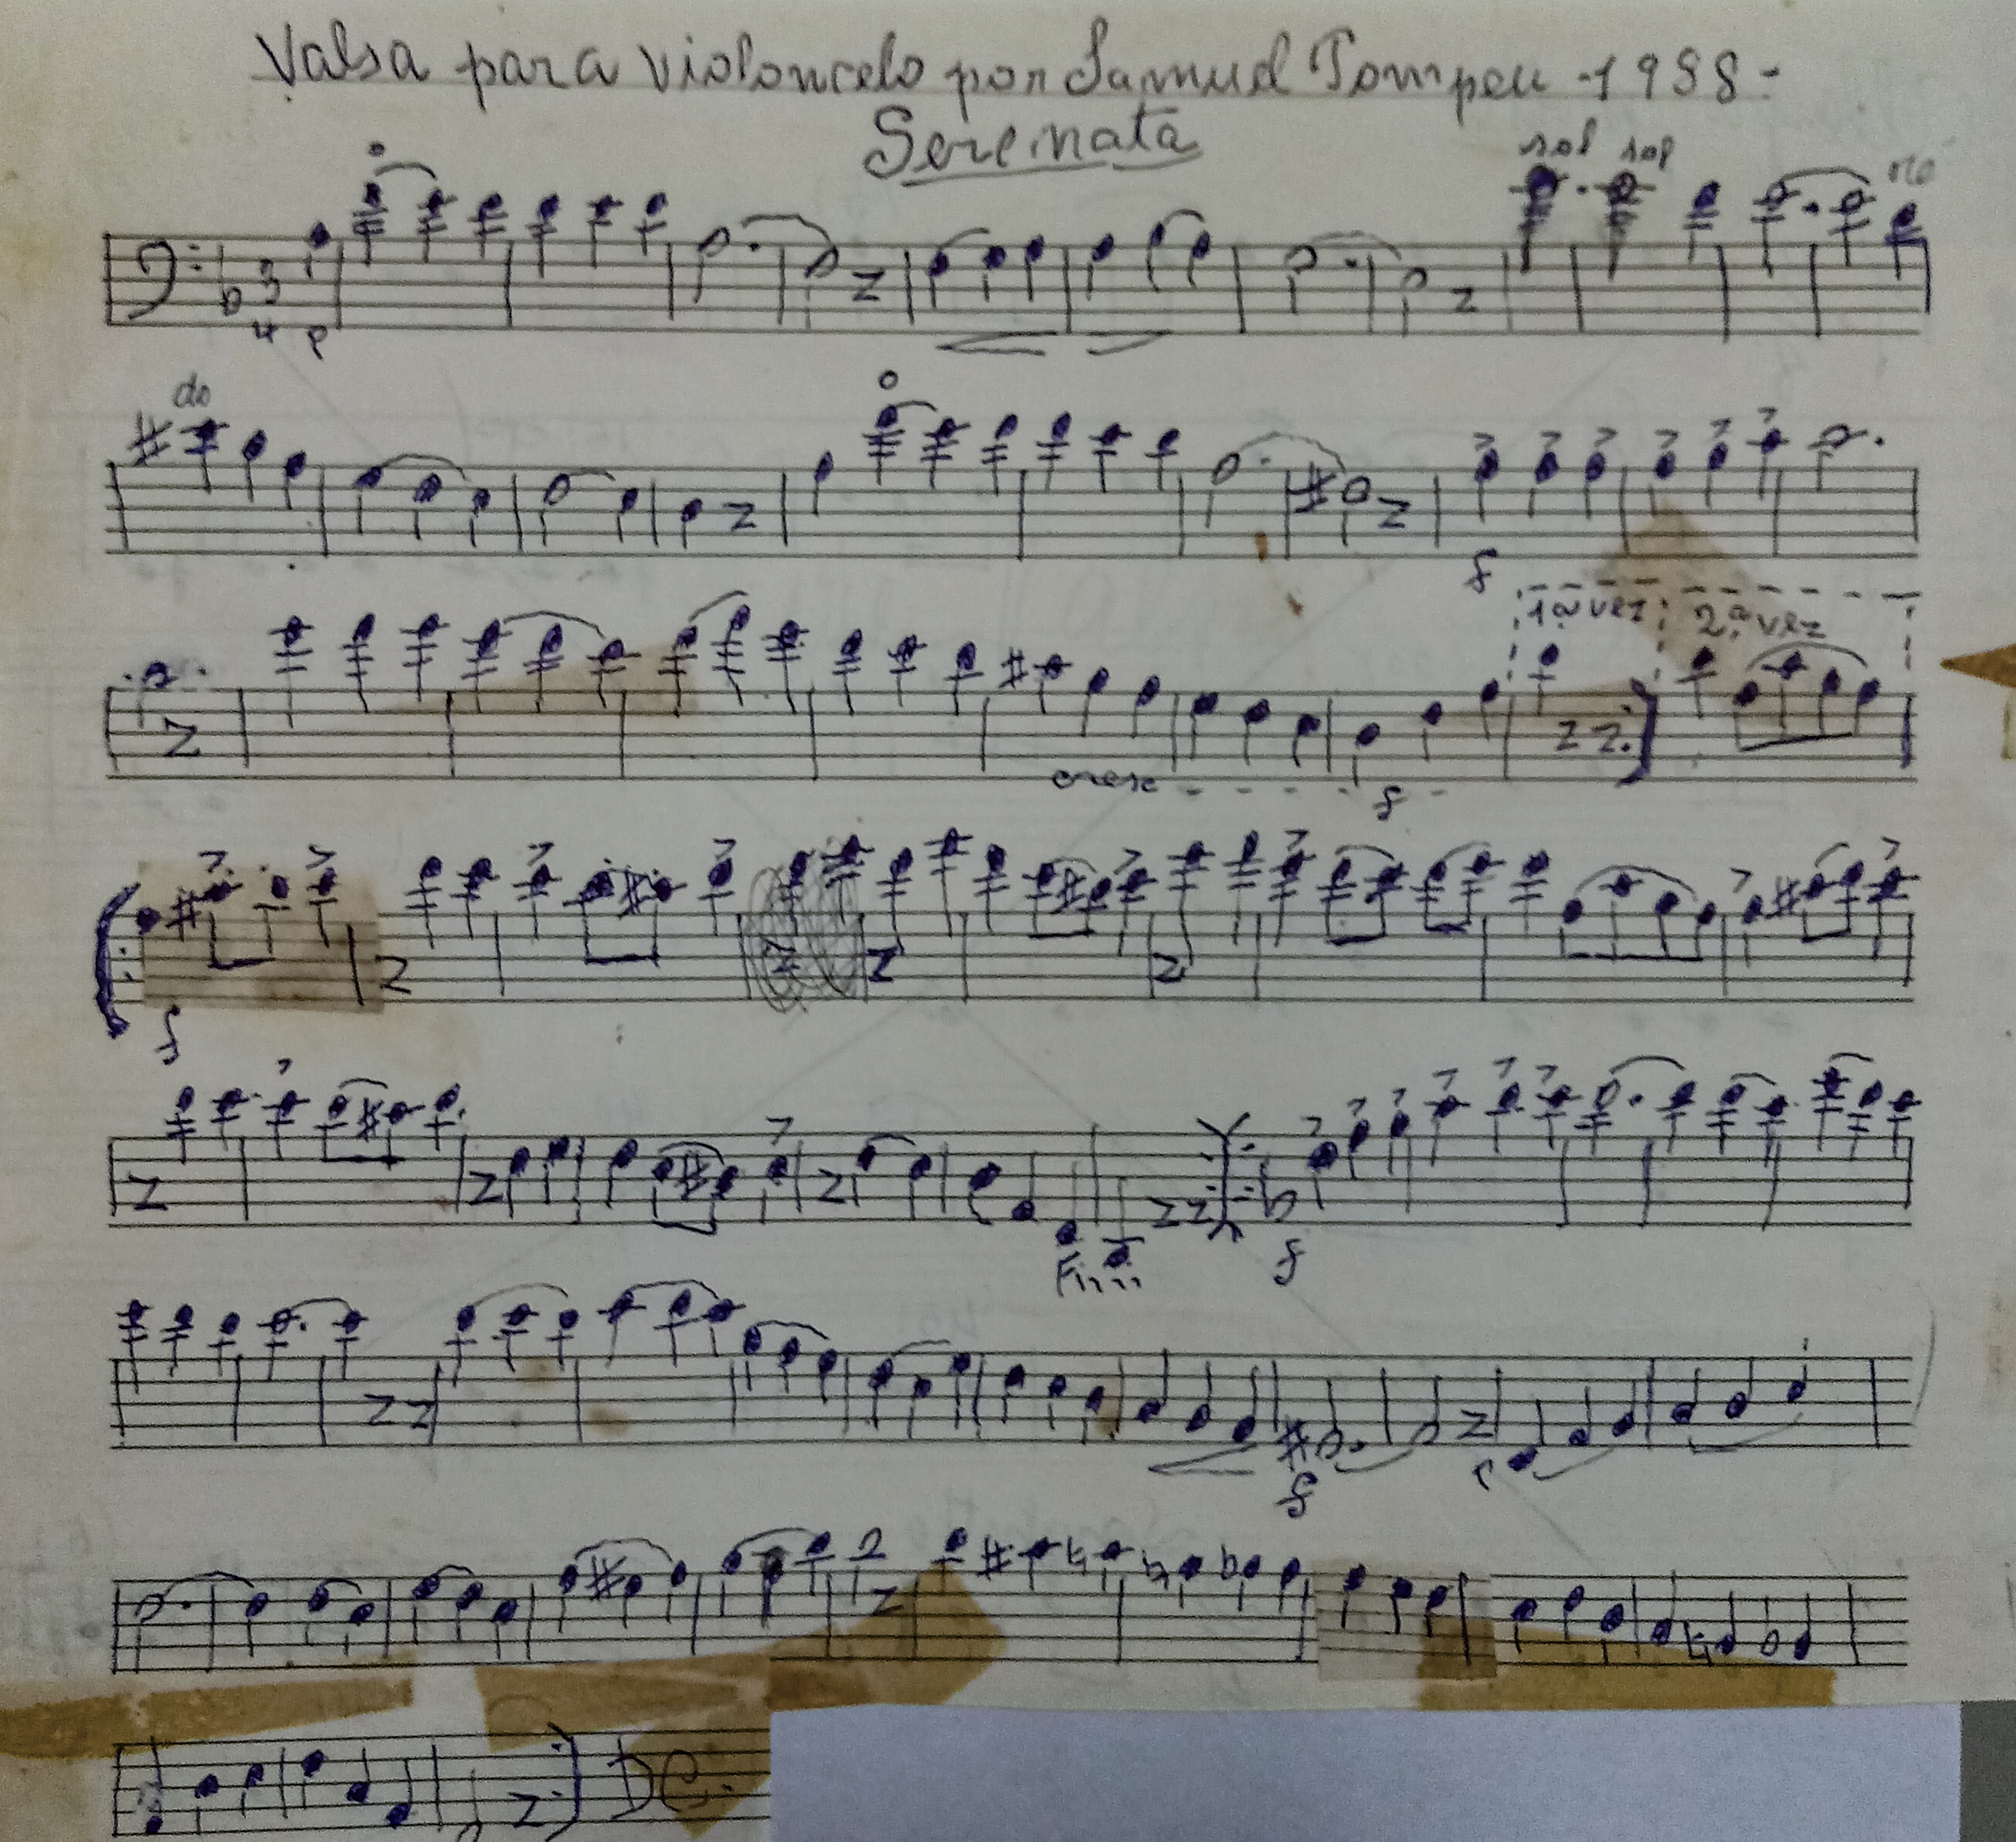 Valsa para violoncelo por Samuel Pompeu - 1988 -
Serenata
sol sol
3
4 P
do
f
1ª vez 2ª vez
cresc f
f
Fim
f
f
D C.